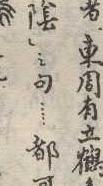 者東周有立鶴
陰」之句……都可